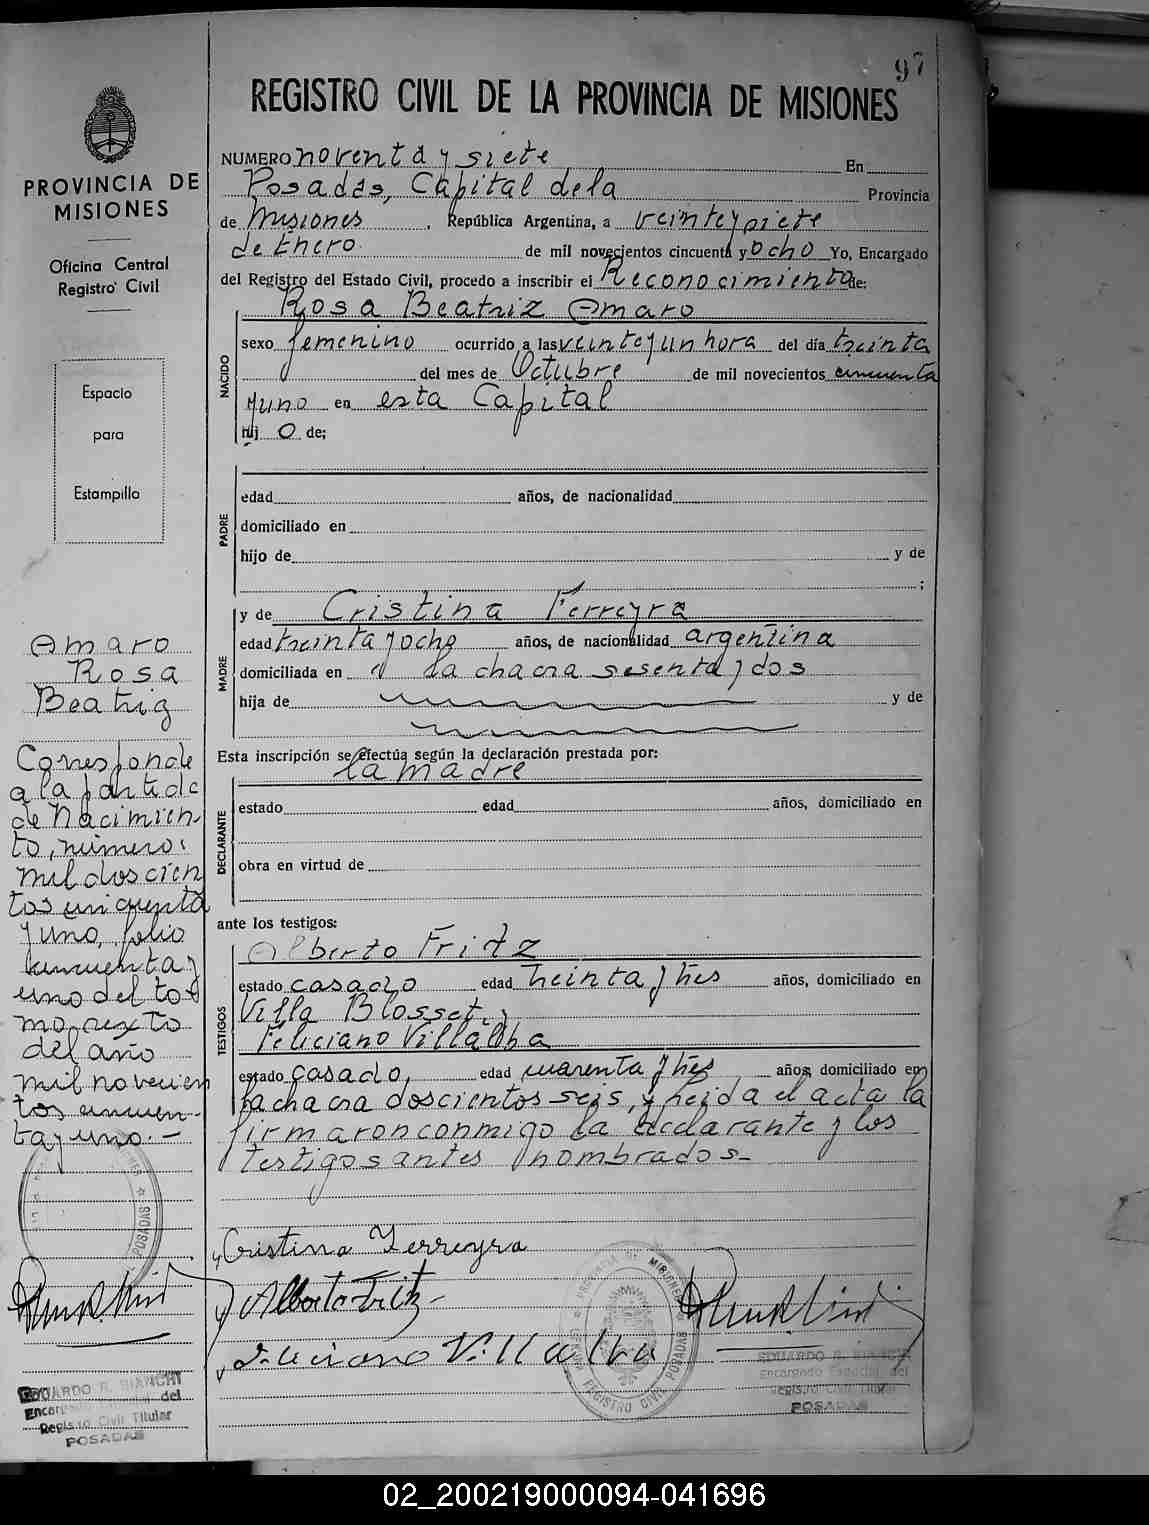 97
REGISTRO CIVIL DE LA PROVINCIA DE MISIONES
NUMERO noventa y siete En
Posadas, Capital de la Provincia
de Misiones, República Argentina, a veinte y siete
de Enero de mil novecientos cincuenta y ocho Yo, Encargado
del Registro del Estado Civil, procedo a inscribir el Reconocimiento de:
NACIDO
Rosa Beatriz Amaro
sexo femenino ocurrido a las veinte y un hora del día treinta
del mes de Octubre de mil novecientos cincuenta
y uno en esta Capital
hij o de;
PADRE
edad años, de nacionalidad
domiciliado en
hijo de y de
;
MADRE
y de Cristina Ferreyra
edad treinta y ocho años, de nacionalidad argentina
domiciliada en la chacra sesenta y dos
hija de y de
Esta inscripción se efectúa según la declaración prestada por:
la madre
DECLARANTE
estado edad años, domiciliado en
obra en virtud de
ante los testigos:
TESTIGOS
Alberto Fritz
estado casado edad treinta y tres años, domiciliado en
Villa Blosset, y
Feliciano Villalba
estado casado, edad cuarenta y tres años, domiciliado en
la chacra doscientos seis, y leida el acta la
firmaron conmigo la declarante y los
testigos antes nombrados.-
Cristina Ferreyra
Alberto Fritz
Feliciano Villalba
PROVINCIA DE MISIONES
REGISTRO CIVIL POSADAS
EDUARDO R. BIANCHI
Encargado Especial del
Registro Civil Titular
POSADAS
PROVINCIA DE
MISIONES
Oficina Central
Registro Civil
Espacio
para
Estampilla
Amaro
Rosa
Beatriz
Corresponde
a la partida
de Nacimien-
to, número:
mil doscien
tos cincuenta
y uno, folio
cincuenta y
uno del to-
mo sexto
del año
mil novecien
tos cincuen-
ta y uno.-
POSADAS
EDUARDO R. BIANCHI
del
Registro Civil Titular
POSADAS
02_200219000094-041696